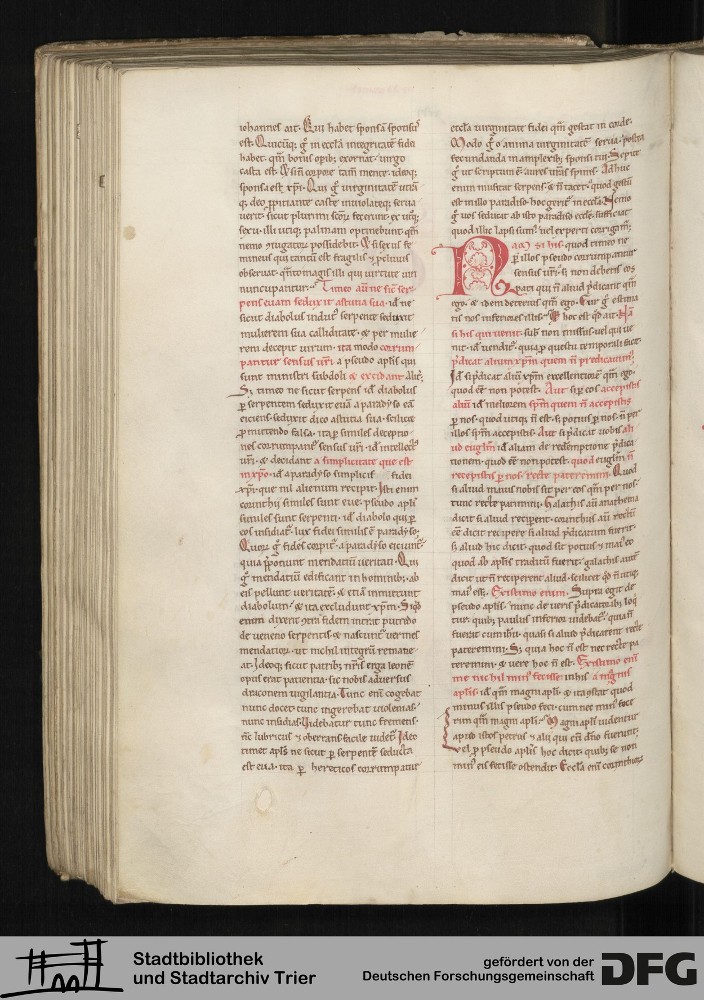 iohannes ait. Qui habet sponsā sponsus
est. Quicūq; g̊ in eccl̄a integritatē fidei
habet. qm̄ bonis opib; exornat. uirgo
casta est. & si n̄ corpore tam̄ mente. ideoq;
sponsa est xp̄i. Qui g̊ uirginitatē
q; deo ꝓpitiante caste inuiolateq; serua
uerit. sicut plurimi scōr fecerunt. ex utroq;
sexu. illi utiq; palmam optinebunt. qm̄
nemo possidebit. & si sexus fe
mineus qui tantū est fragilis & ꝓcliuus
obseruat. q̄nto magis illi qui uirtute uiri
nuncupantur. Timeo aū ne sic̄ ser
pens euam seduxit astutia sua. id ne
sicut diabolus indut serpente seduxit
mulierem sua calliditate. & per mulie
rem decepit uirum. ita modo corrum
pantur sensus ur̄i a pseudo aplis qui
sunt ministri subdoli & excidant
S; timeo ne sicut serpens id diabolus
ꝑ serpentem seduxit euā a paradyso eā
eiciens. seduxit dico astutia sua. scilicet
ꝓmittendo falsa. ita ꝑ similes deceptio
nes corrumpant sensus ur̄i. id intellect
ur̄i. & decidant a simplicitate que est
in xp̄o. id a paradyso simplicis fidei
xp̄i. que nil alienum recipit. Isti enim
corinthii similes sunt eue. pseudo apl̄i
similes sunt serpenti. id diabolo qui ꝑ
eos insidiat. lux fidei similis ē paradyso.
Quos g̊ fides corripit. a paradyso eiciunt.
quia ꝓponunt mendatiū ueritati. Qui
g̊ mendatiū edificant in hominib;. ab
eis pellunt ueritatē. & etiā inmittunt
diabolum. & ita excludunt xp̄m. Si qd
enim dixerit contra fidem merito putredo
de ueneno serpentis & nascunt uermes
mendatior. ut nichil integrū remane
at. Ideoq; sicut patrib; nr̄is erga leonē
opus erat patientia. sic nobis aduersus
draconem uigilantia. Tunc eni cogebat
nunc docet. tunc ingerebat uiolentias.
nunc insidias. Uidebatur tunc fremens.
nc̄ lubricus & oberrans facile uidet. Ideo
timet apl̄s ne sicut ꝑ serpentē seducta
est eua. ita ꝑ hereticos corrumpatur
eccl̄a uirginitate fidei qm̄ gestat in corde.
Modo g̊ o anima uirginitatē serua. postea
fecundanda in amplexib; sponsi tui. Sepite
g̊ ut scriptum ē aures uras spinis. Adhuc
enim mussitat serpens. & n̄ tacet. quod gestū
est in illo paradiso. hoc gerit in eccl̄a. Nemo
g̊ uos seducat ab isto paradiso eccl̄e. sufficiat
quod illuc lapsi sum. uel experti corrigam.
Nam si his quod timeo ne
per illos pseudo corrumpantur
sensus ur̄i. si non debetis eos
pati qui n̄ aliud p̄dicant qm̄
ego. & idem deterius qm̄ ego. Cur g̊ estima
tis nos inferiores illis. & hoc est qd ait. Nā
si his qui uenit. sub n̄ missus. uel qui ue
nit. id uendit. quia ꝓ questu temporali facit.
p̄dicat alium xp̄m quem n̄ predicauim.
Id si p̄dicat aliū xp̄m excellentiorē qm̄ ego.
quod eē non potest. Aut si ꝑ eos accepistis
aliū id meliorem spm̄ quem n̄ accepistis
ꝑ nos. quod utiq; n̄ est. s; potius ꝑ nos. n̄ per
illos spm̄ accepistis. Aut si p̄dicat uobis ali
ud eugl̄m id aliam de redemptione p̄dica
tionem. quod eē non potest. quod eugl̄m n̄
recepistis ꝑ nos. recte pateremini. Quod
si aliud maius nobis sit per eos qm̄ per nos.
tunc recte patimini. Galathis aū anathema
dicit si aliud recipient. corinthiis aū rectū
eē dicit recipere si aliud p̄dicatum fuerit.
s; aliud hic dicit. quod sit potius & maius eo
quod ab apl̄is traditū fuerit. galathis aute
dicit ut n̄ reciperent aliud. scilicet qd n̄ utiq;
maius eēt. Existimo enim. Supra egit de
pseudo apl̄is. nunc de ueris p̄dicatorib; loq
tur. quib; paulus inferior uidebat. quia n̄
fuerit cum ihu. quasi si aliud p̄dicarent recte
pateremini. S; quia hoc n̄ est nec recte pa
teremini. & uere hoc n̄ est. Existimo eni
me nichil minus fecisse in his a magnis
apl̄is. id qm̄ magni apl̄i. & ita existat quod
minus illis pseudo feci. cum nec minus fece
rim qm̄ magni apl̄i. Magni apl̄i uidentur
apud istos petrus & alii qui cū dn̄o fuerunt.
Uel ꝓ pseudo apl̄is hoc dicit. quib; se non
minus eis fecisse ostendit. Eccl̄a eni corinthior
Stadtbibliothek
und Stadtarchiv Trier
gefördert von der
Deutschen Forschungsgemeinschaft
DFG